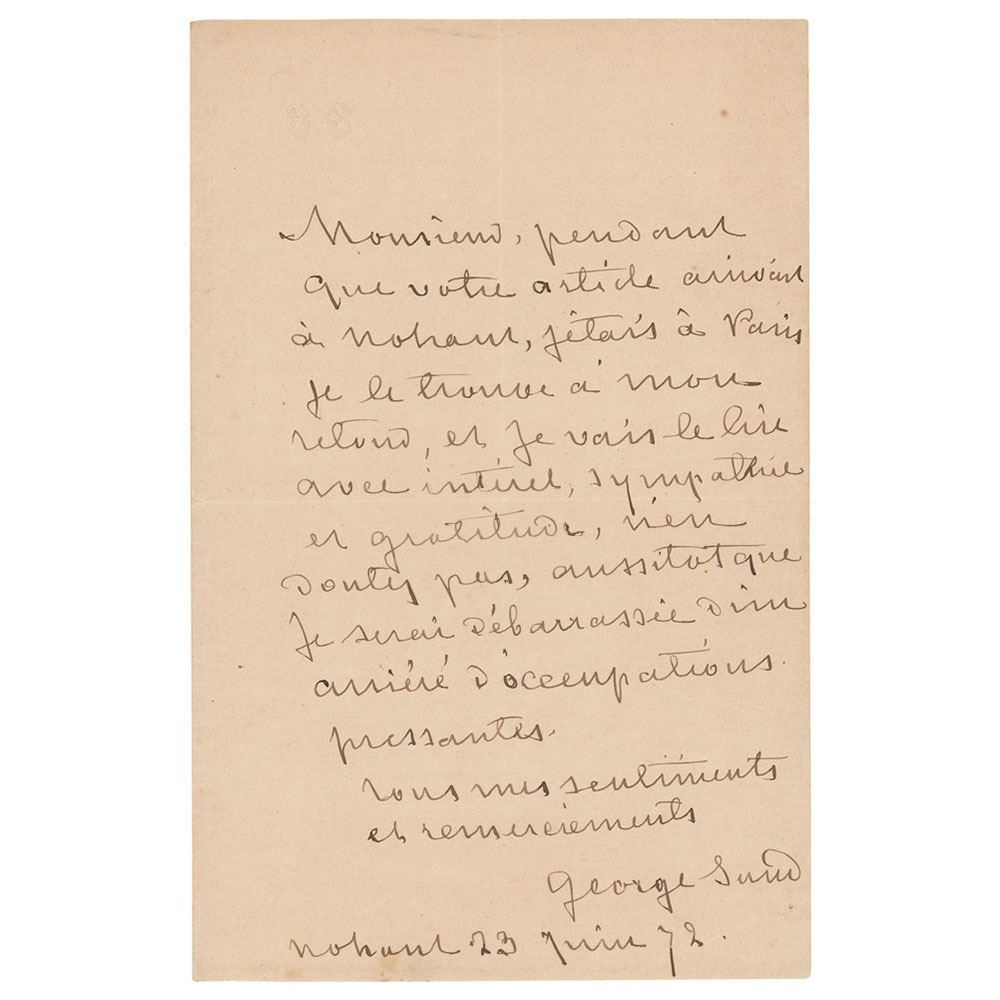 Monsieur, pendant
que votre article arrivait
à Nohant, j'étais à Paris
je le trouve à mon
retour, et je vais le lire
avec intéret, sympathie
et gratitude, n'en
doutez pas, aussitot que
je serai débarrassée d'un
arriéré d'occupations
pressantes.
tous mes sentiments
et remerciements
George Sand
Nohant 23 juin 72.